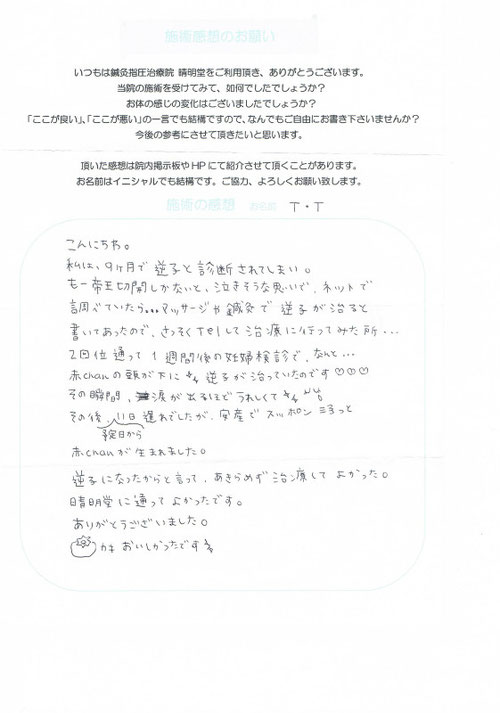 施術感想のお願い
いつもは鍼灸指圧治療院 晴明堂をご利用頂き、ありがとうございます。
当院の施術を受けてみて、如何でしたでしょうか?
お体の感じの変化はございましたでしょうか?
「ここが良い」、「ここが悪い」の一言でも結構ですので、なんでもご自由にお書き下さいませんか?
今後の参考にさせて頂きたいと思います。
頂いた感想は院内掲示板やHPにて紹介させて頂くことがあります。
お名前はイニシャルでも結構です。ご協力、よろしくお願い致します。
施術の感想 お名前 T・T
こんにちわ。
私は、9ヶ月で逆子と診断されてしまい。
もー帝王切開しかないと、泣きそうな思いで、ネットで
調べていたら...マッサージや鍼灸で逆子が治ると
書いてあったので、さっそくTelして治療に行ってみた所...
2回位通って1週間後の妊婦検診で、なんと...
赤chanの頭が下に 逆子が治っていたのです♡♡♡
その瞬間、涙が出るほどうれしくて
その後、11日遅れでしたが、安産でスッポンミョっと
予定日から
赤chanが生まれました。
逆子になったからと言って、あきらめず治療してよかった。
晴明堂に通ってよかったです。
ありがとうございました。
カキ おいしかったです